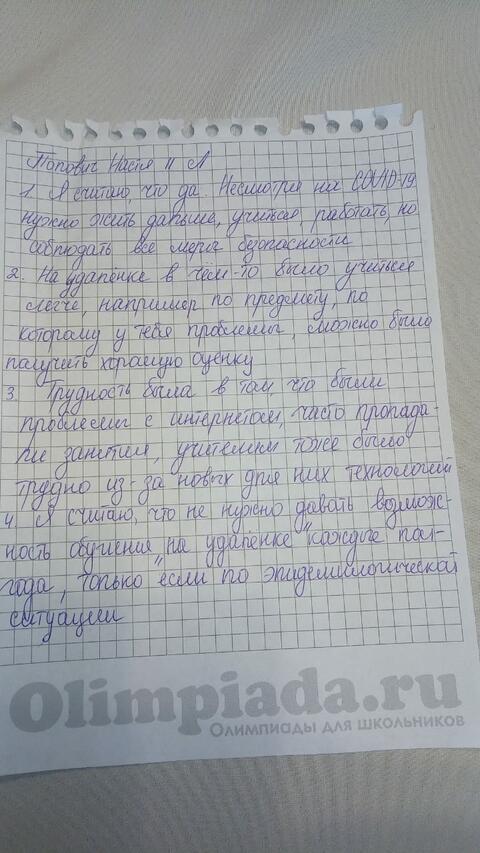 Попович Настя 11 А
1. Я считаю, что да. Несмотря на COVID-19
нужно жить дальше, учиться, работать, но
соблюдать все меры безопасности
2. На удалёнке в чём-то было учиться
легче, например по предмету, по
которому у тебя проблемы, можно было
получить хорошую оценку
3. Трудность была в том, что были
проблемы с интернетом, часто пропада-
ли занятия, учителям тоже было
трудно из-за новых для них технологий
4. Я считаю, что не нужно давать возмож-
ность обучения "на удалёнке" каждые пол-
года, только если по эпидемиологической
ситуации
Olimpiada.ru
Олимпиады для школьников